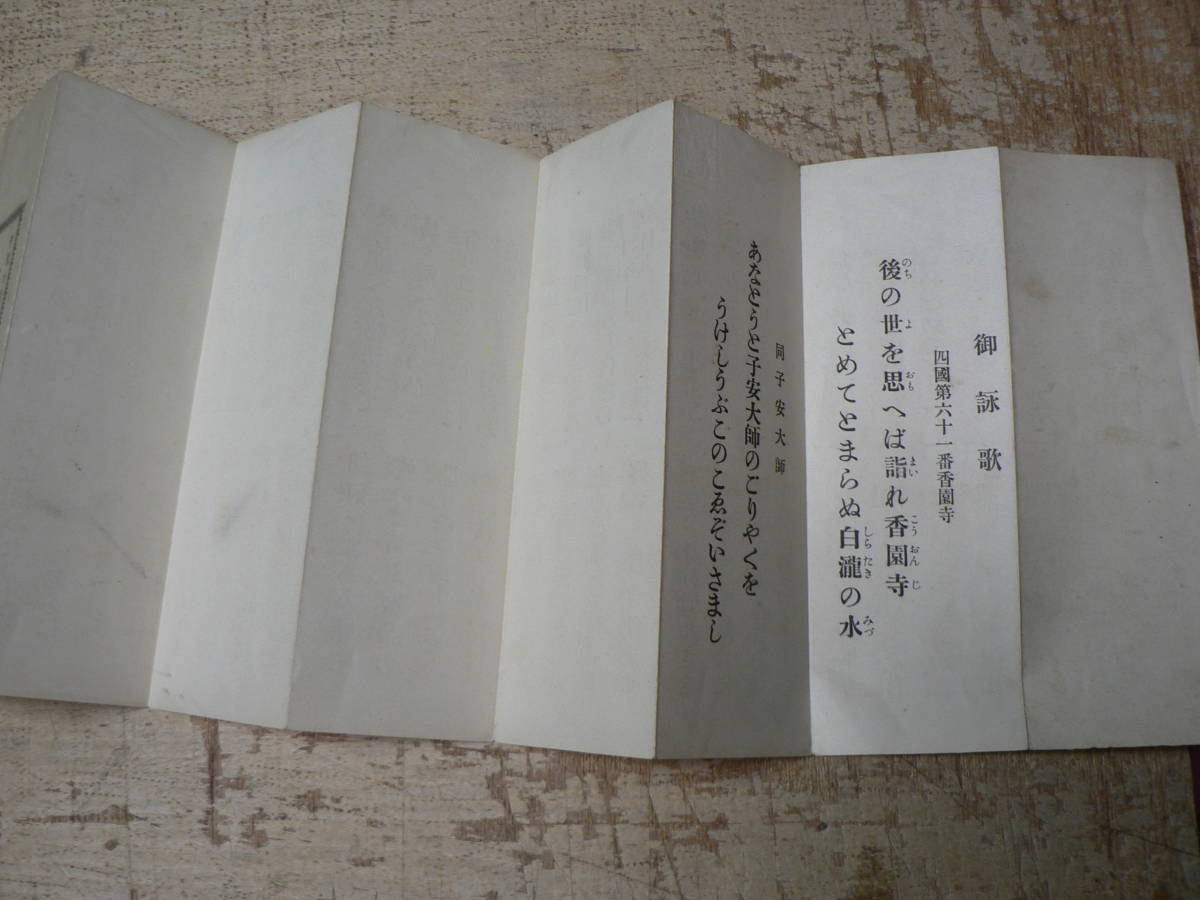 御詠歌
四國第六十一番香園寺
後の世を思へば詣れ香園寺
とめてとまらぬ白瀧の水
同子安大師
あなとうと子安大師のごりやくを
うけしうぶこのこゑぞいさまし